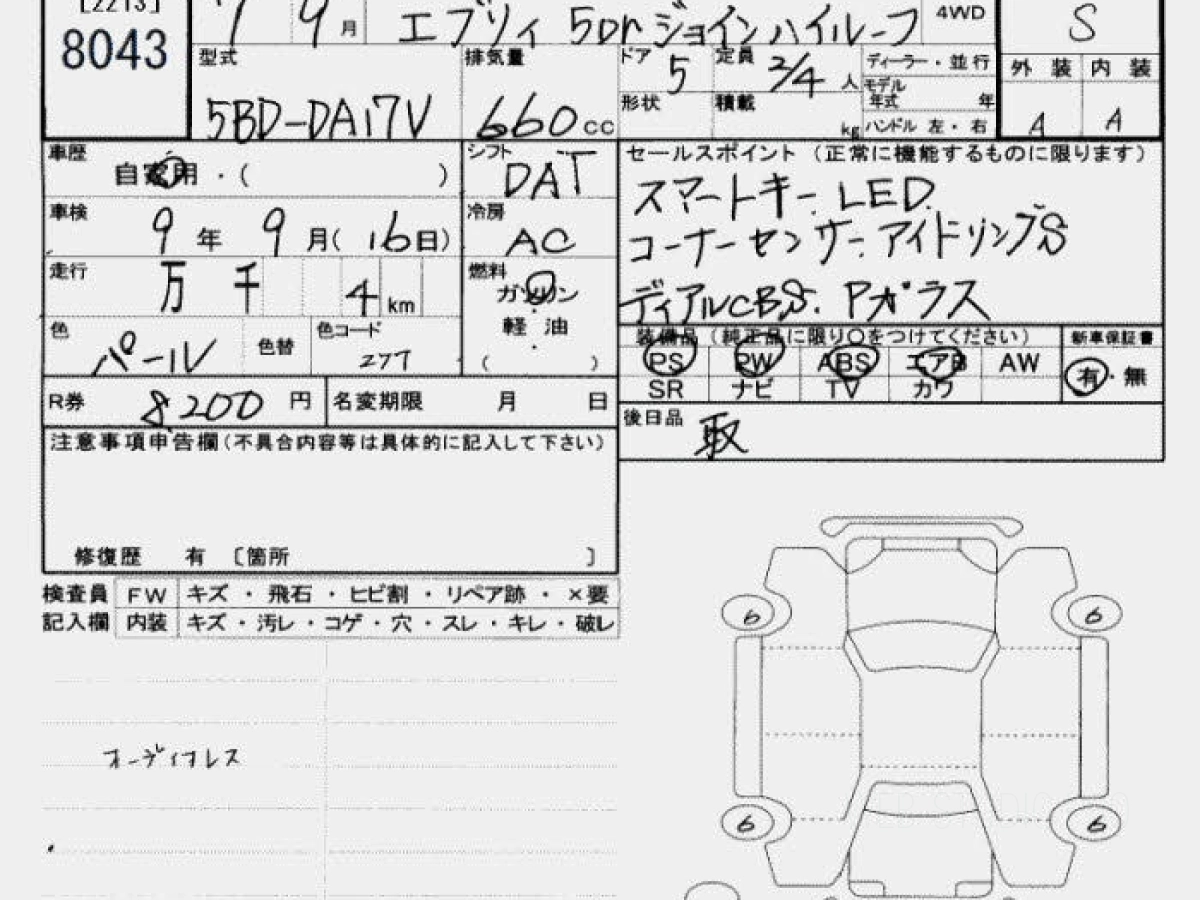 [2213]
8043
7 9月 エブリィ 5Dr ジョインハイルーフ 4WD S
型式 5BD-DA17V
排気量 660cc
ドア 5 定員 2/4人
形状 積載 kg
ディーラー・並行
モデル年式 年
ハンドル 左・右
外装 内装
A A
車歴 自家用・( )
シフト DAT
車検 9年 9月(16日)
冷房 AC
走行 万 千 4km
燃料 ガソリン
軽油
( )
色 パール 色替 色コード 277
セールスポイント(正常に機能するものに限ります)
スマートキー. LED.
コーナーセンサー. アイドリングS
CBS. Pガラス
装備品(純正品に限り○をつけてください)
PS PW ABS エアB AW
SR ナビ TV カワ
新車保証書
有・無
R券 8200円 名変期限 月 日
後日品 取
注意事項申告欄(不具合内容等は具体的に記入して下さい)
修復歴 有 〔箇所 〕
検査員 FW キズ・飛石・ヒビ割・リペア跡・×要
記入欄 内装 キズ・汚レ・コゲ・穴・スレ・キレ・破レ
オーディオレス
6 6
6 6